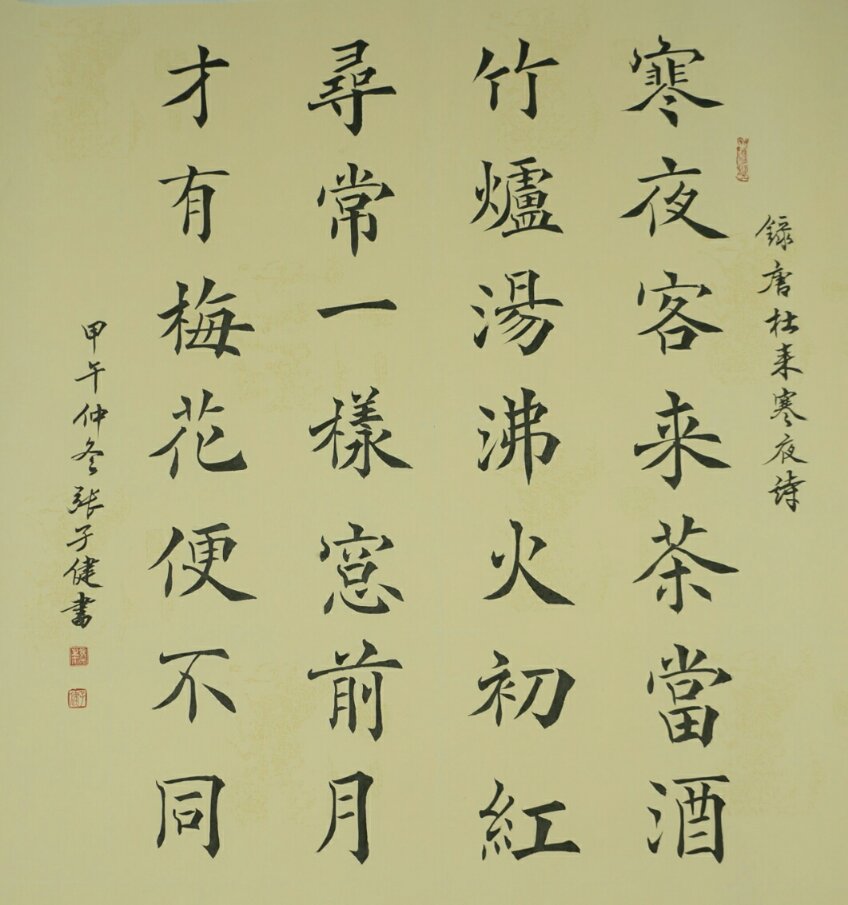 録唐杜耒寒夜詩
寒夜客来茶當酒
竹爐湯沸火初紅
尋常一樣窓前月
才有梅花便不同
甲午仲冬張子健書